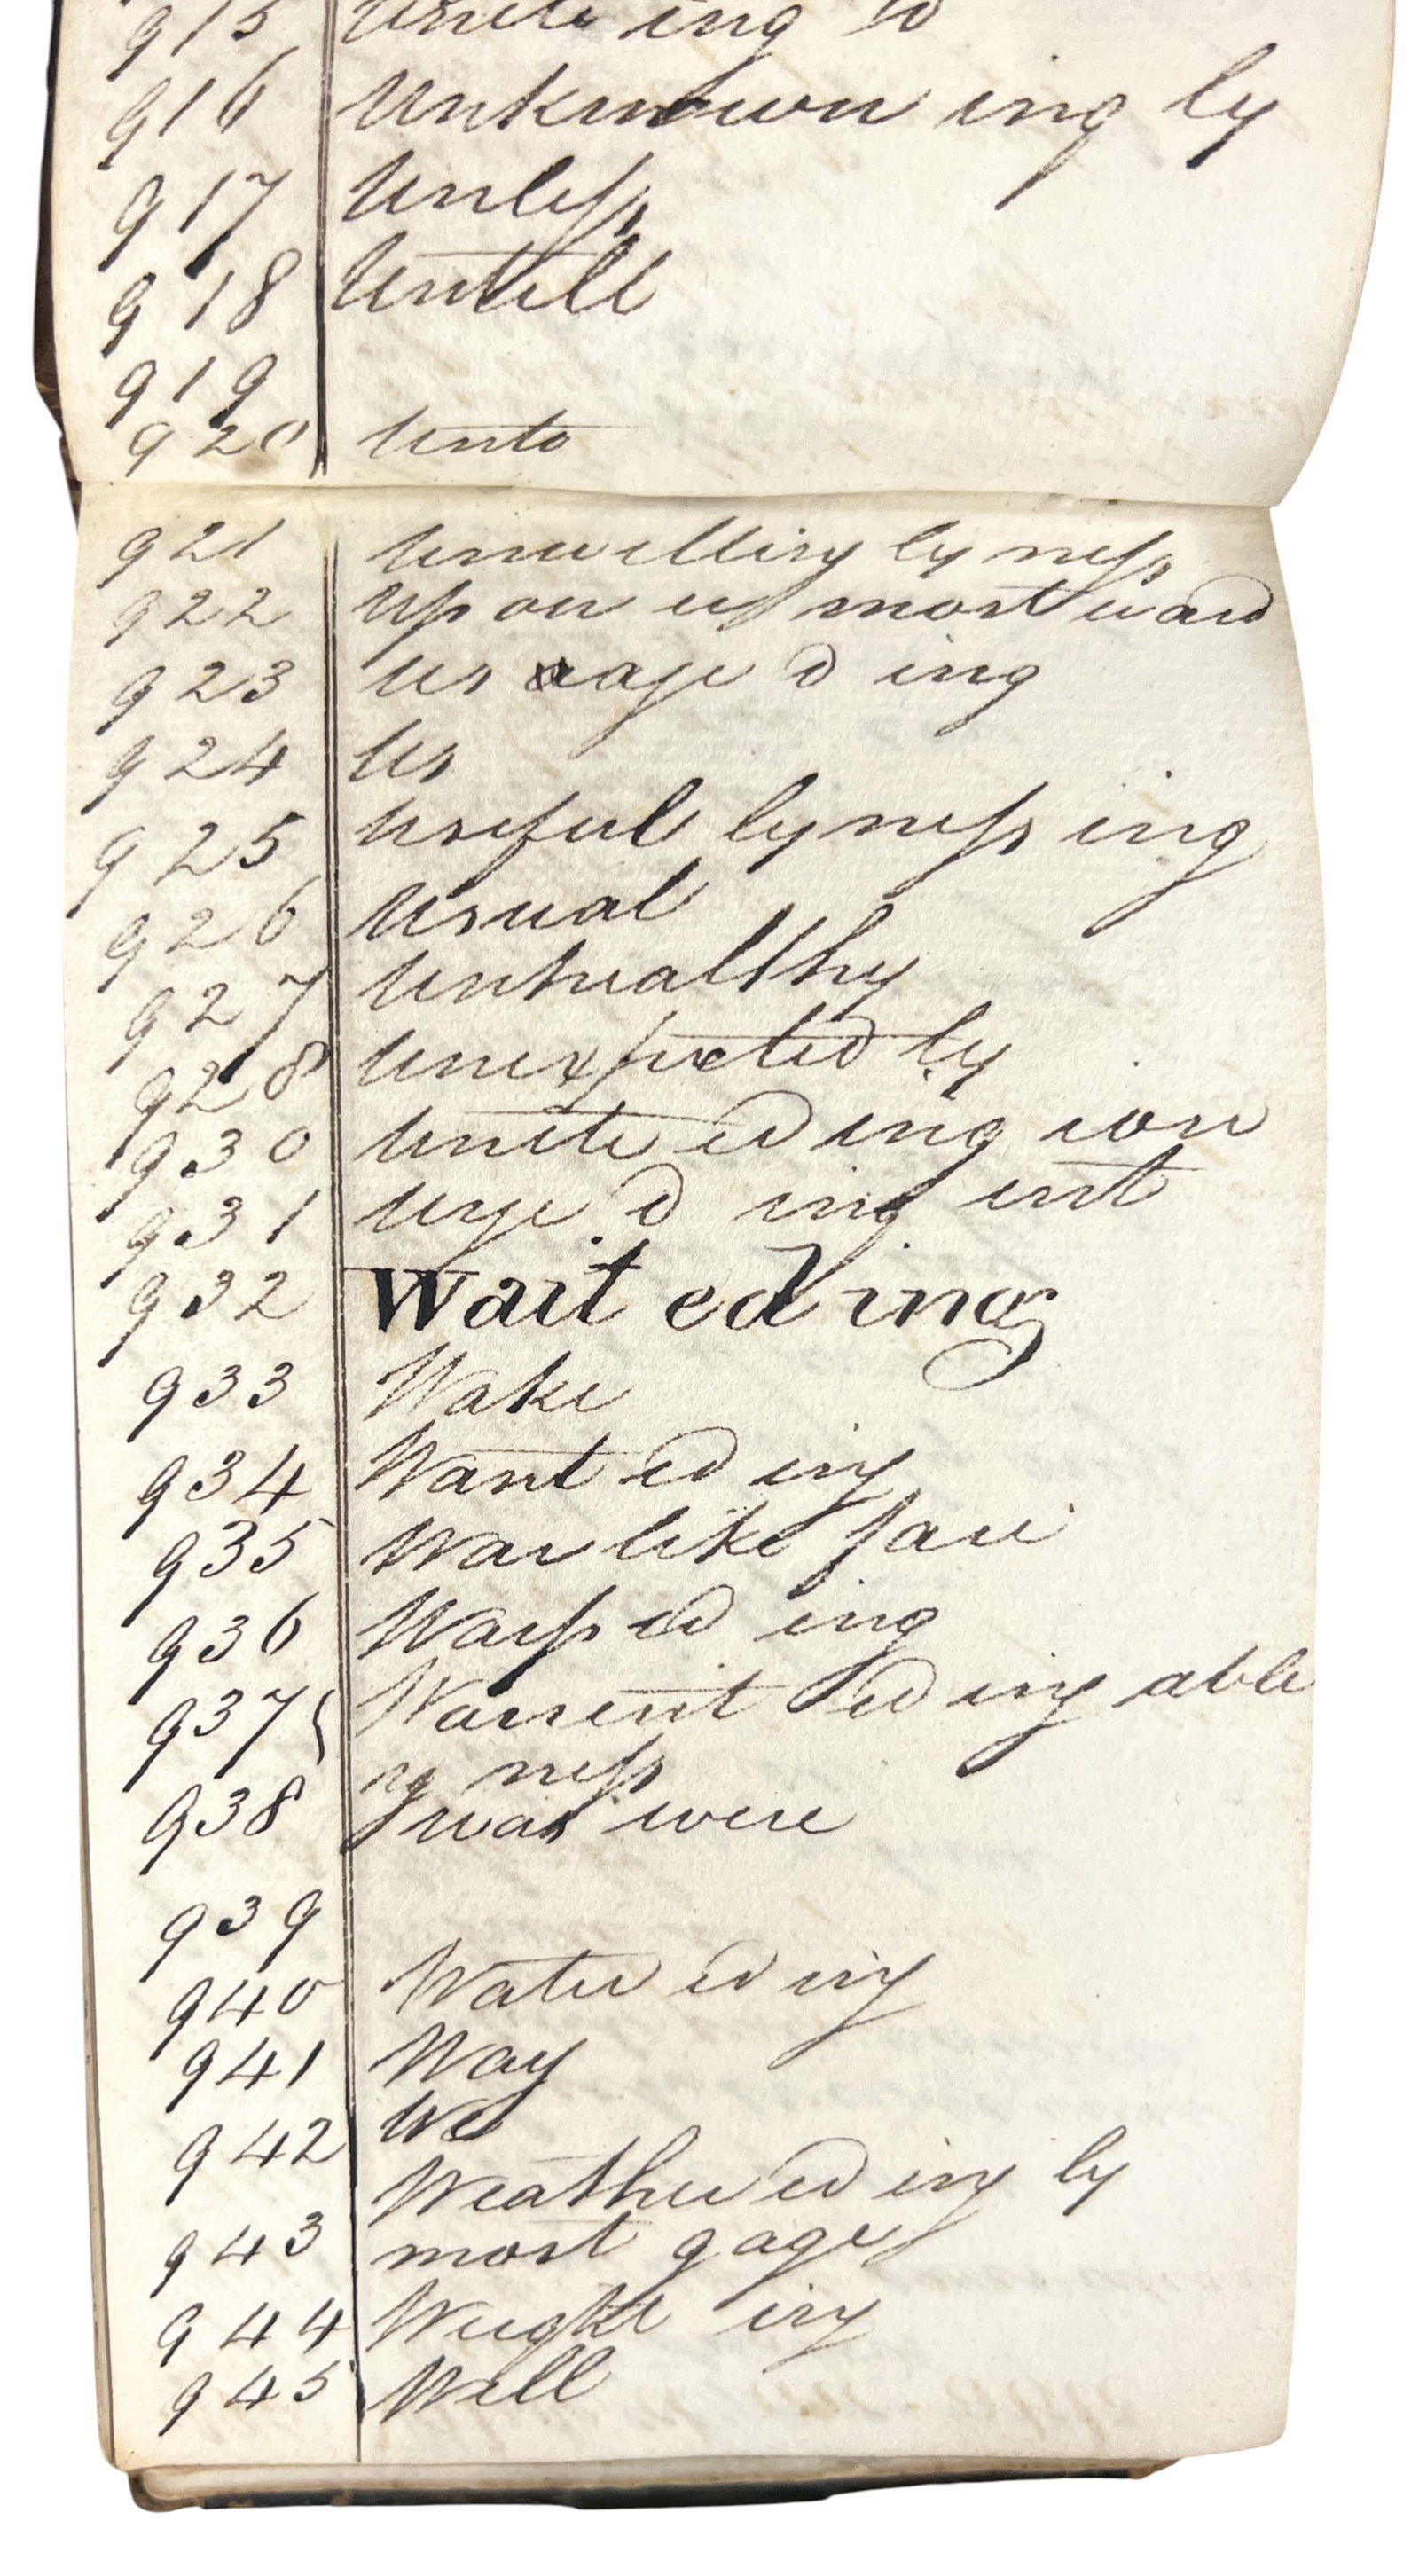 915 Unite ing d
916 Unknown ing ly
917 Unless
918 Untill
919
920 Unto
921 Unwilling ly ness
922 Upon up most ward
923 Us age d ing
924 Us
925 Useful ly ness ing
926 Usual
927 Unhealthy
928 Unexpected ly
930 Unite ed ing ion
931 Urge d ing ent
932 Wait ed ing
933 Wake
934 Want ed ing
935 War like fare
936 Warp ed ing
937 { Warrent ed ing able
ry ness
938 was were
939
940 Water ed ing
941 Way
942 We
Weather ed ing ly
943 most gage
944 Weight ing
945 Well